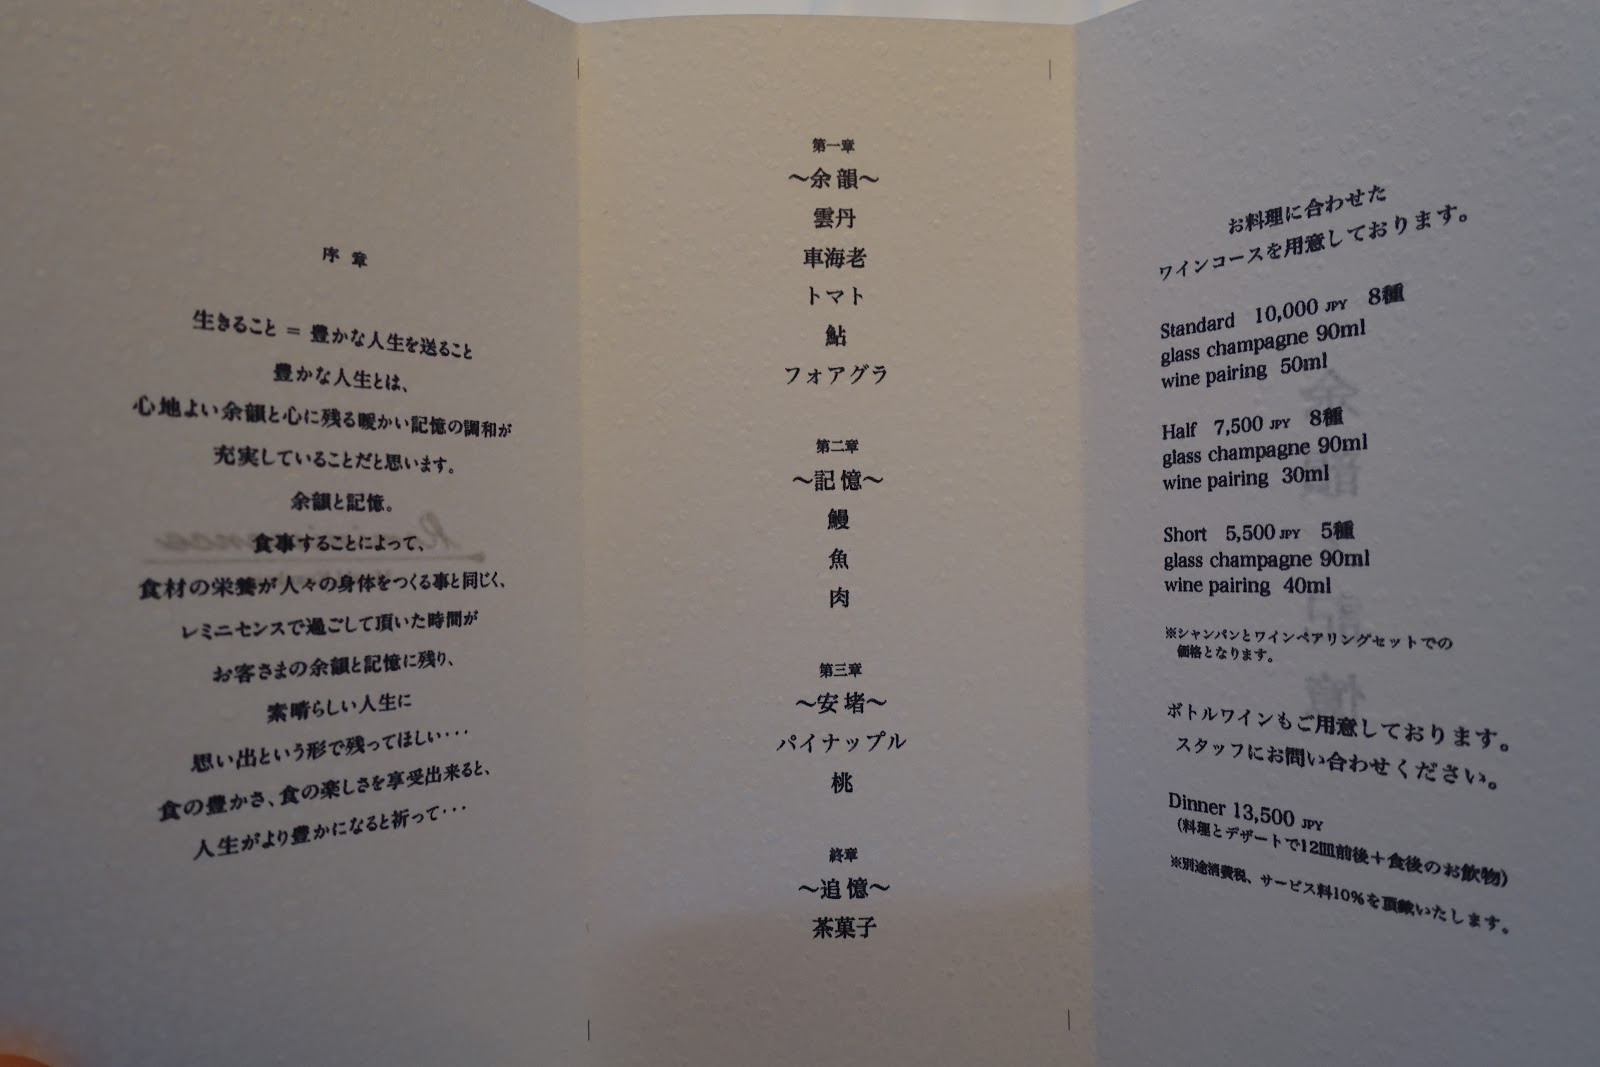 序 章
生きること = 豊かな人生を送ること
豊かな人生とは、
心地よい余韻と心に残る暖かい記憶の調和が
充実していることだと思います。
余韻と記憶。
食事することによって、
食材の栄養が人々の身体をつくる事と同じく、
レミニセンスで過ごして頂いた時間が
お客さまの余韻と記憶に残り、
素晴らしい人生に
思い出という形で残ってほしい･･･
食の豊かさ、食の楽しさを享受出来ると、
人生がより豊かになると祈って･･･
第一章
～余韻～
雲丹
車海老
トマト
鮎
フォアグラ
第二章
～記憶～
鰻
魚
肉
第三章
～安堵～
パイナップル
桃
終章
～追憶～
茶菓子
お料理に合わせた
ワインコースを用意しております。
Standard 10,000 JPY 8種
glass champagne 90ml
wine pairing 50ml
Half 7,500 JPY 8種
glass champagne 90ml
wine pairing 30ml
Short 5,500 JPY 5種
glass champagne 90ml
wine pairing 40ml
※シャンパンとワインペアリングセットでの
価格となります。
ボトルワインもご用意しております。
スタッフにお問い合わせください。
Dinner 13,500 JPY
(料理とデザートで12皿前後＋食後のお飲物)
※別途消費税、サービス料10%を頂戴いたします。